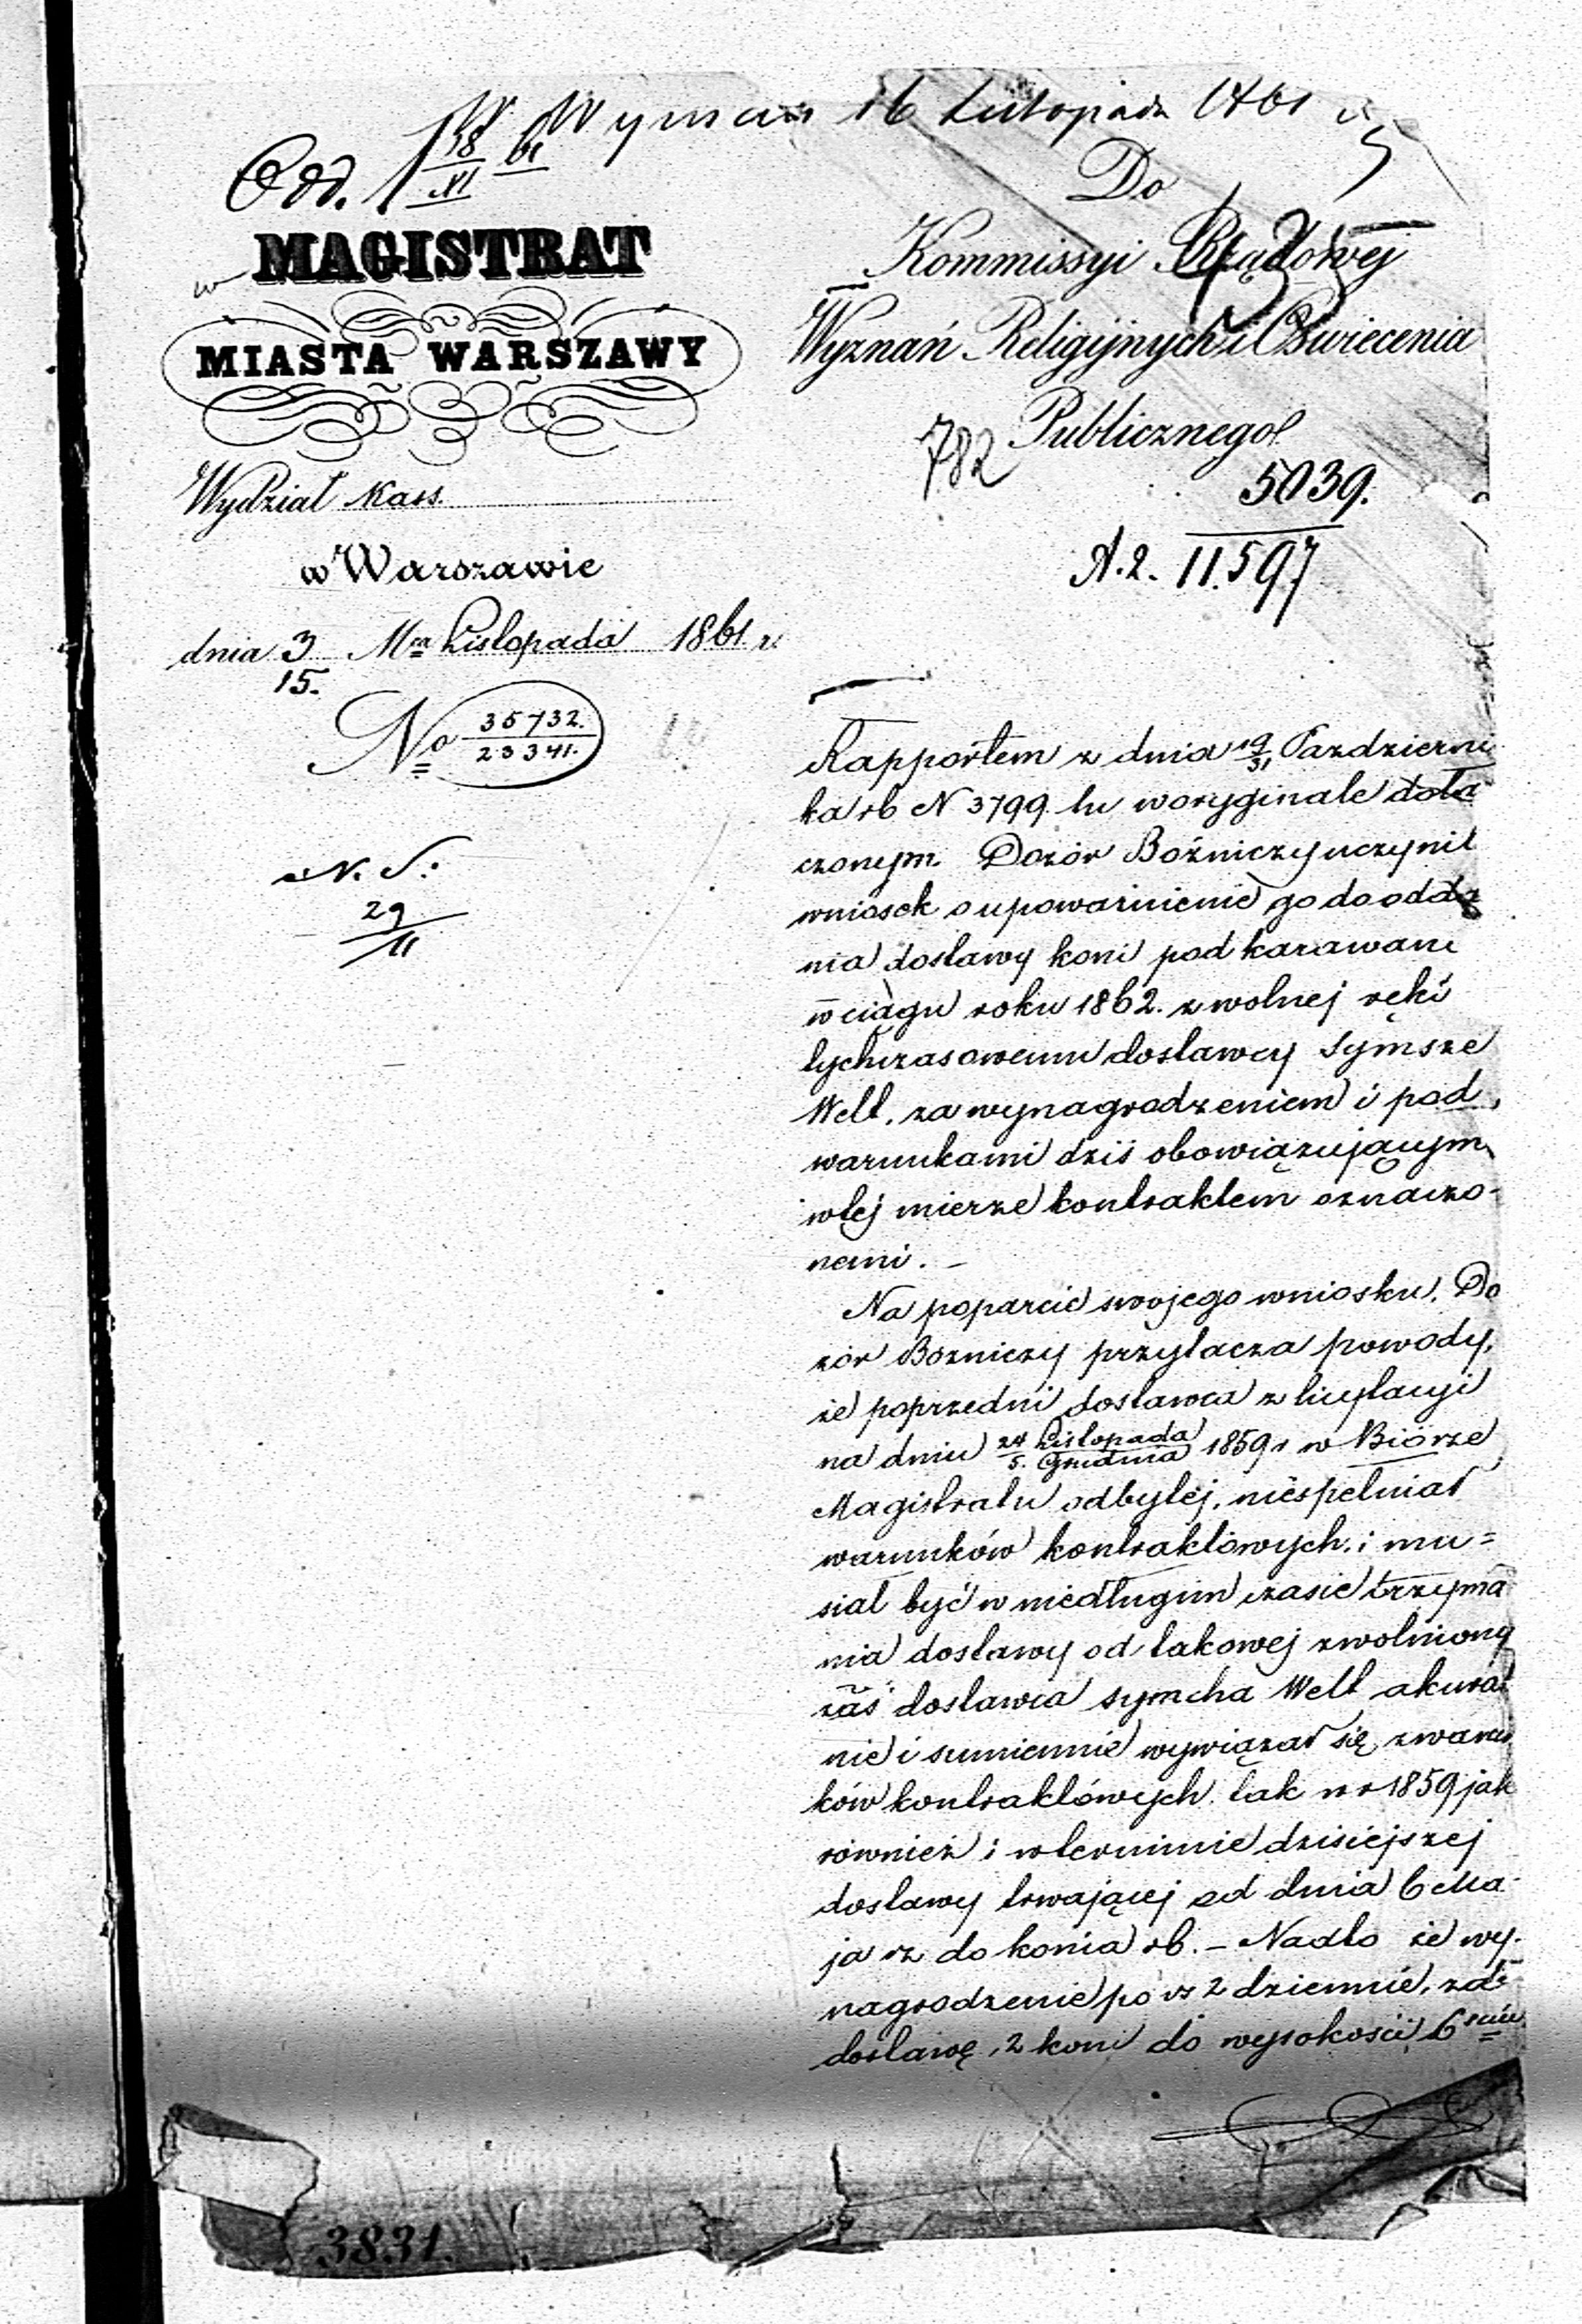 Wyznań 16 Listopada 1861 r.
Odd. 1 18/XI 61
MAGISTRAT
MIASTA WARSZAWY
Wydział Kass.
w Warszawie
dnia 3/15. Mca Listopada 1861 r.
No 35732./23341.
N. S.
29/11
Do
Kommissyi Rządowej
Wyznań Religijnych i Oświecenia
Publicznego
782
5039.
A.2. 11.597
Rapportem z dnia 19/31 Pazdzierni
ka rb N 3799. tu w oryginale dołą
czonym. Dozór Bożniczy uczynił
wniosek o upoważnienie go do odda
nia dostawy koni pod karawany
w ciągu roku 1862. z wolnej ręki
tychczasowemu dostawcy Symsze
Welt, za wynagrodzeniem i pod
warunkami dziś obowiązującym
w tej mierze kontraktem oznaczo-
nemi. –
Na poparcie swojego wniosku, Do
zór Bozniczy przyłącza powody,
że poprzedni dostawca z licytacyi
na dniu 24 Listopada/5. Grudnia 1859 r w Biórze
Magistratu odbytej, niespełniał
warunków kontraktowych, i mu=
siał być w niedługim czasie trzyma
nia dostawy od takowej zwolniony
zaś dostawca Symcha Welt akurat
nie i sumiennie wywiązał się z warun
ków kontraktówych tak w r 1859 jak
również i w terminie dzisiejszej
dostawy trwającej od dnia 6 Ma-
ja rz do końca rb. – Nadto że wy-
nagrodzenie po rs 2 dziennie, za
dostawę, 2 koni do wysokości 6 ściu
3831.